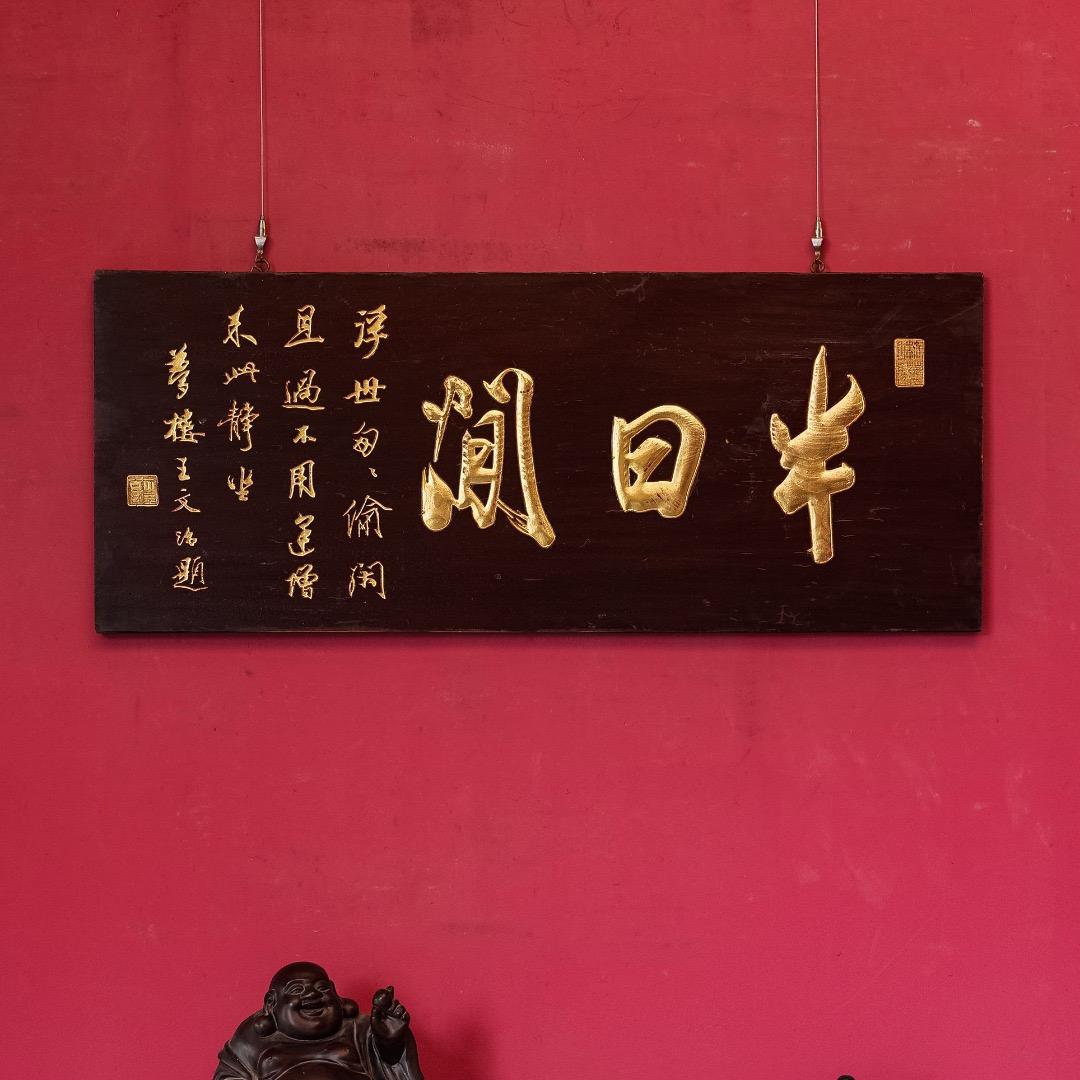 半日閒
浮世匆〻偷閑
且過不用逢僧
來此靜坐
夢樓王文治題